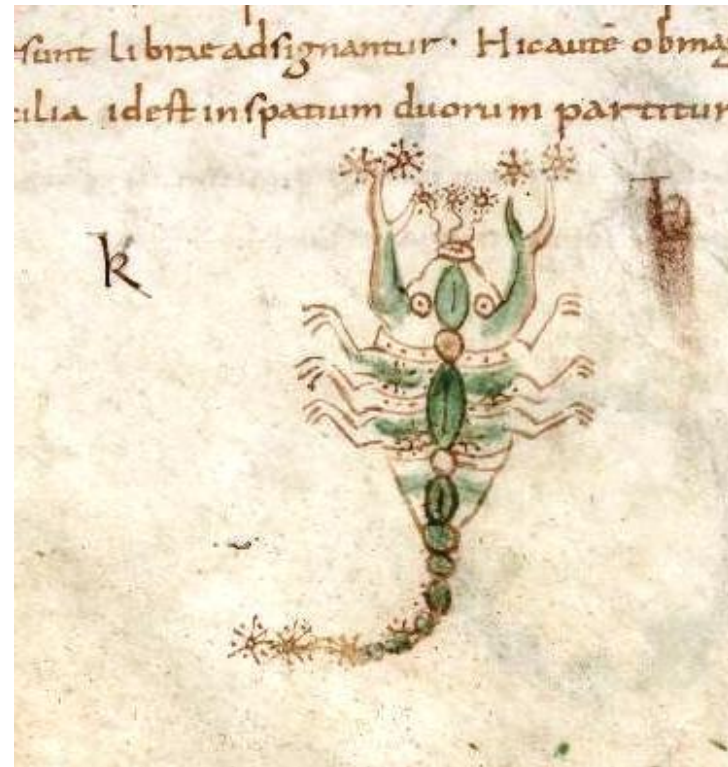 sunt librae adsignantur. Hic autē ob mag
cilia id est in spatium duorum partitur
k